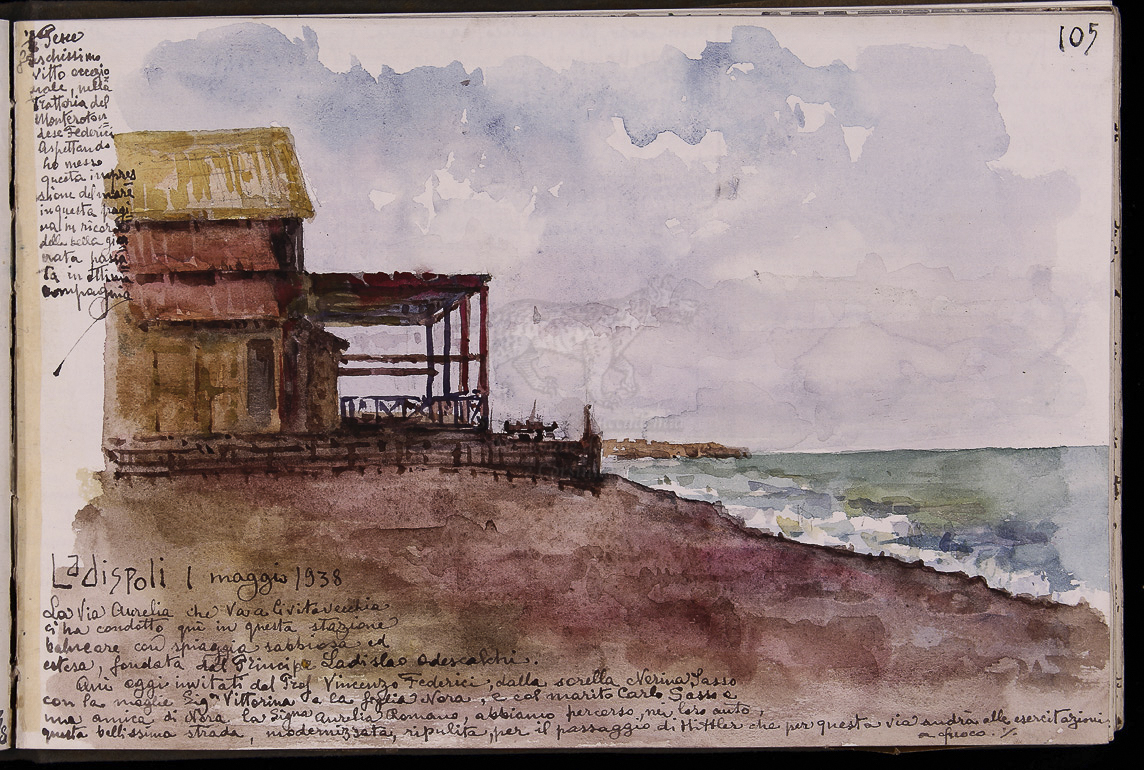 105
Pesce
freschissimo
vitto eccezio
nale, nella
trattoria del
Monteroton
dese Federici
Aspettando
ho messo
questa impres
sione del mare
in questa pagi
na in ricordo
della bella gior
nata passa
ta in ottima
compagnia
Ladispoli 1 maggio 1938
La Via Aurelia che va a Civitavecchia
ci ha condotto qui in questa stazione
balneare con spiaggia sabbiosa ed
estesa, fondata dal Principe Ladislao Odescalchi.
oggi invitati dal Prof Vincenzo Federici, dalla sorella Nerina Sasso
con la moglie Sigra Vittorina e la figlia Nora, e col marito Carlo Sasso e
una amica di Nora la Signa Aurelia Romano, abbiamo percorso, nei loro auto,
questa bellissima strada, modernizzata, ripulita, per il passaggio di Hittler che per questa via andrà alle esercitazioni
a fuoco.